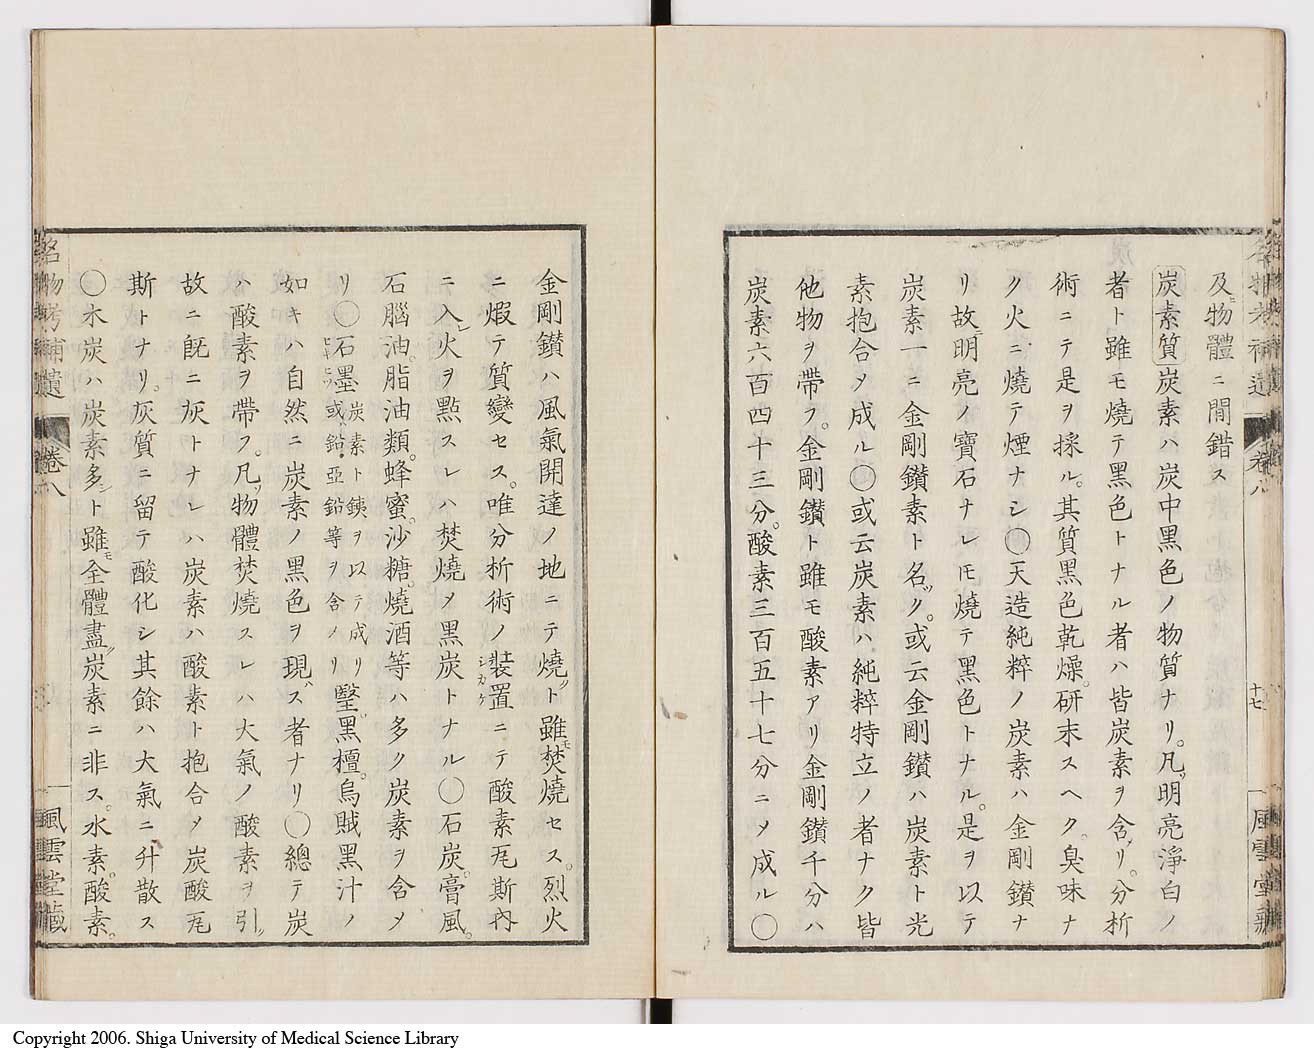 及物體ニ間錯ス
炭素質 炭素ハ炭中黑色ノ物質ナリ。凡ソ明亮淨白ノ
者ト雖モ燒テ黑色トナル者ハ皆炭素ヲ含メリ。分析
術ニテ是ヲ採ル。其質黑色乾燥。研末スヘク。臭味ナ
ク火ニ燒テ煙ナシ〇天造純粹ノ炭素ハ金剛鑽ナ
リ故ニ明亮ノ寶石ナレ𪜈燒テ黑色トナル。是ヲ以テ
炭素一ニ金剛鑽素ト名ツク。或云金剛鑽ハ炭素ト光
素抱合メ成ル〇或云炭素ハ純粹特立ノ者ナク皆
他物ヲ帶フ。金剛鑽ト雖モ酸素アリ金剛鑽千分ハ
炭素六百四十三分。酸素三百五十七分ニメ成ル〇
名物考補遺 卷八 十七 風雲堂藏
金剛鑽ハ風氣開達ノ地ニテ燒クト雖モ焚燒セス。烈火
ニ煆テ質變セス。唯分析術ノ裝置シカケニテ酸素瓦斯內
ニ入シ火ヲ點スレハ焚燒メ黑炭トナル〇石炭。膏風。
石腦油。脂油類。蜂蜜。沙糖。燒酒等ハ多ク炭素ヲ含メ
リ〇石墨炭素ト銕ヲ以テ成リ或鉛亞鉛等ヲ含メリ瑿。黑檀。烏賊黑汁ノ
如キハ自然ニ炭素ノ黑色ヲ現ハス者ナリ〇總テ炭
ハ酸素ヲ帶フ。凡ソ物體焚燒スレハ大氣ノ酸素ヲ引ク
故ニ既ニ灰トナレハ炭素ハ酸素ト抱合メ炭酸瓦
斯トナリ。灰質ニ留テ酸化シ其餘ハ大氣ニ升散ス
〇木炭ハ炭素多シト雖モ全體盡ク炭素ニ非ス。水素。酸素。
名物考補遺 卷八 風雲堂藏
Copyright 2006. Shiga University of Medical Science Library